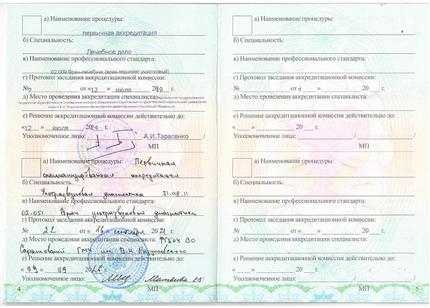 а) Наименование процедуры:
первичная аккредитация
б) Специальность:
Лечебное дело
в) Наименование профессионального стандарта:
02.009 Врач-лечебник (врач-терапевт участковый)
г) Протокол заседания аккредитационной комиссии:
№ 7 от «12» июля 2019 г.
д) Место проведения аккредитации специалиста:
е) Решение аккредитационной комиссии действительно до:
«12» июля 2024 г.
Уполномоченное лицо: / А.И.Тарасенко /
МП
а) Наименование процедуры: Первичная
специализированная аккредитация
б) Специальность:
Ультразвуковая диагностика 31.08.11
в) Наименование профессионального стандарта:
02.051 Врач ультразвуковой диагностики
г) Протокол заседания аккредитационной комиссии:
№ 22 от «16» сентября 2021 г.
д) Место проведения аккредитации специалиста: ФГБОУ ВО
Саратовский ГМУ им. В.И. Разумовского
е) Решение аккредитационной комиссии действительно до:
«09» 09
Уполномоченное лицо:
4 МП
а) Наименование процедуры:
б) Специальность:
в) Наименование профессионального стандарта:
г) Протокол заседания аккредитационной комиссии:
№ от « » 20 г.
д) Место проведения аккредитации специалиста:
е) Решение аккредитационной комиссии действительно до:
« » 20 г.
Уполномоченное лицо: / /
МП
а) Наименование процедуры:
б) Специальность:
в) Наименование профессионального стандарта:
г) Протокол заседания аккредитационной комиссии:
№ от « » 20 г.
д) Место проведения аккредитации специалиста:
е) Решение аккредитационной комиссии действительно до:
« » 20 г.
Уполномоченное лицо: / /
МП 5